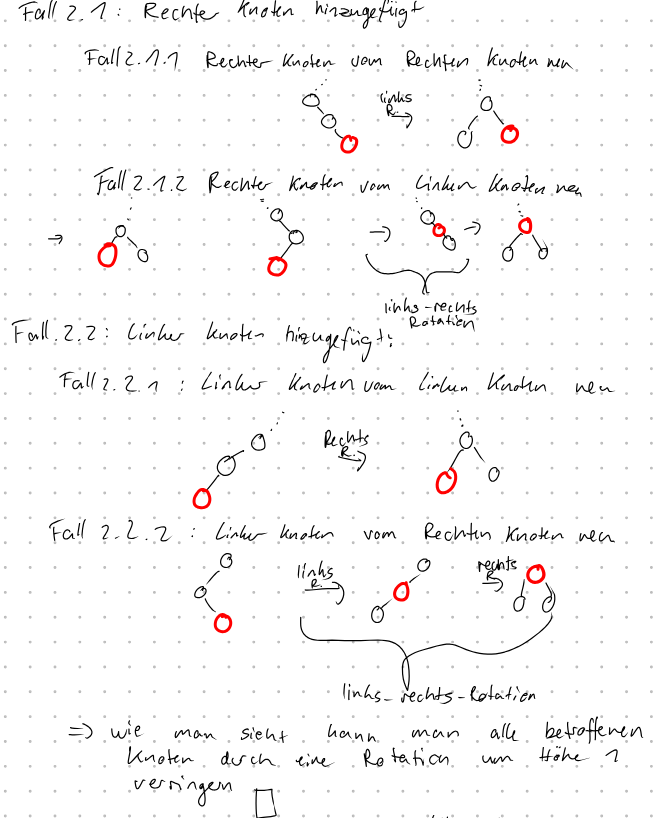 Fall 2.1: Rechter Knoten hinzugefügt
Fall 2.1.1 Rechter Knoten vom Rechten Knoten neu
links
R.
Fall 2.1.2 Rechter Knoten vom Linken Knoten neu
links-rechts
Rotation
Fall 2.2: Linker Knoten hinzugefügt:
Fall 2.2.1: Linker Knoten vom linken Knoten neu
Rechts
R.
Fall 2.2.2: Linker Knoten vom Rechten Knoten neu
links
R.
rechts
R.
links-rechts-Rotation
=> wie man sieht kann man alle betroffenen
Knoten durch eine Rotation um Höhe 1
verringern